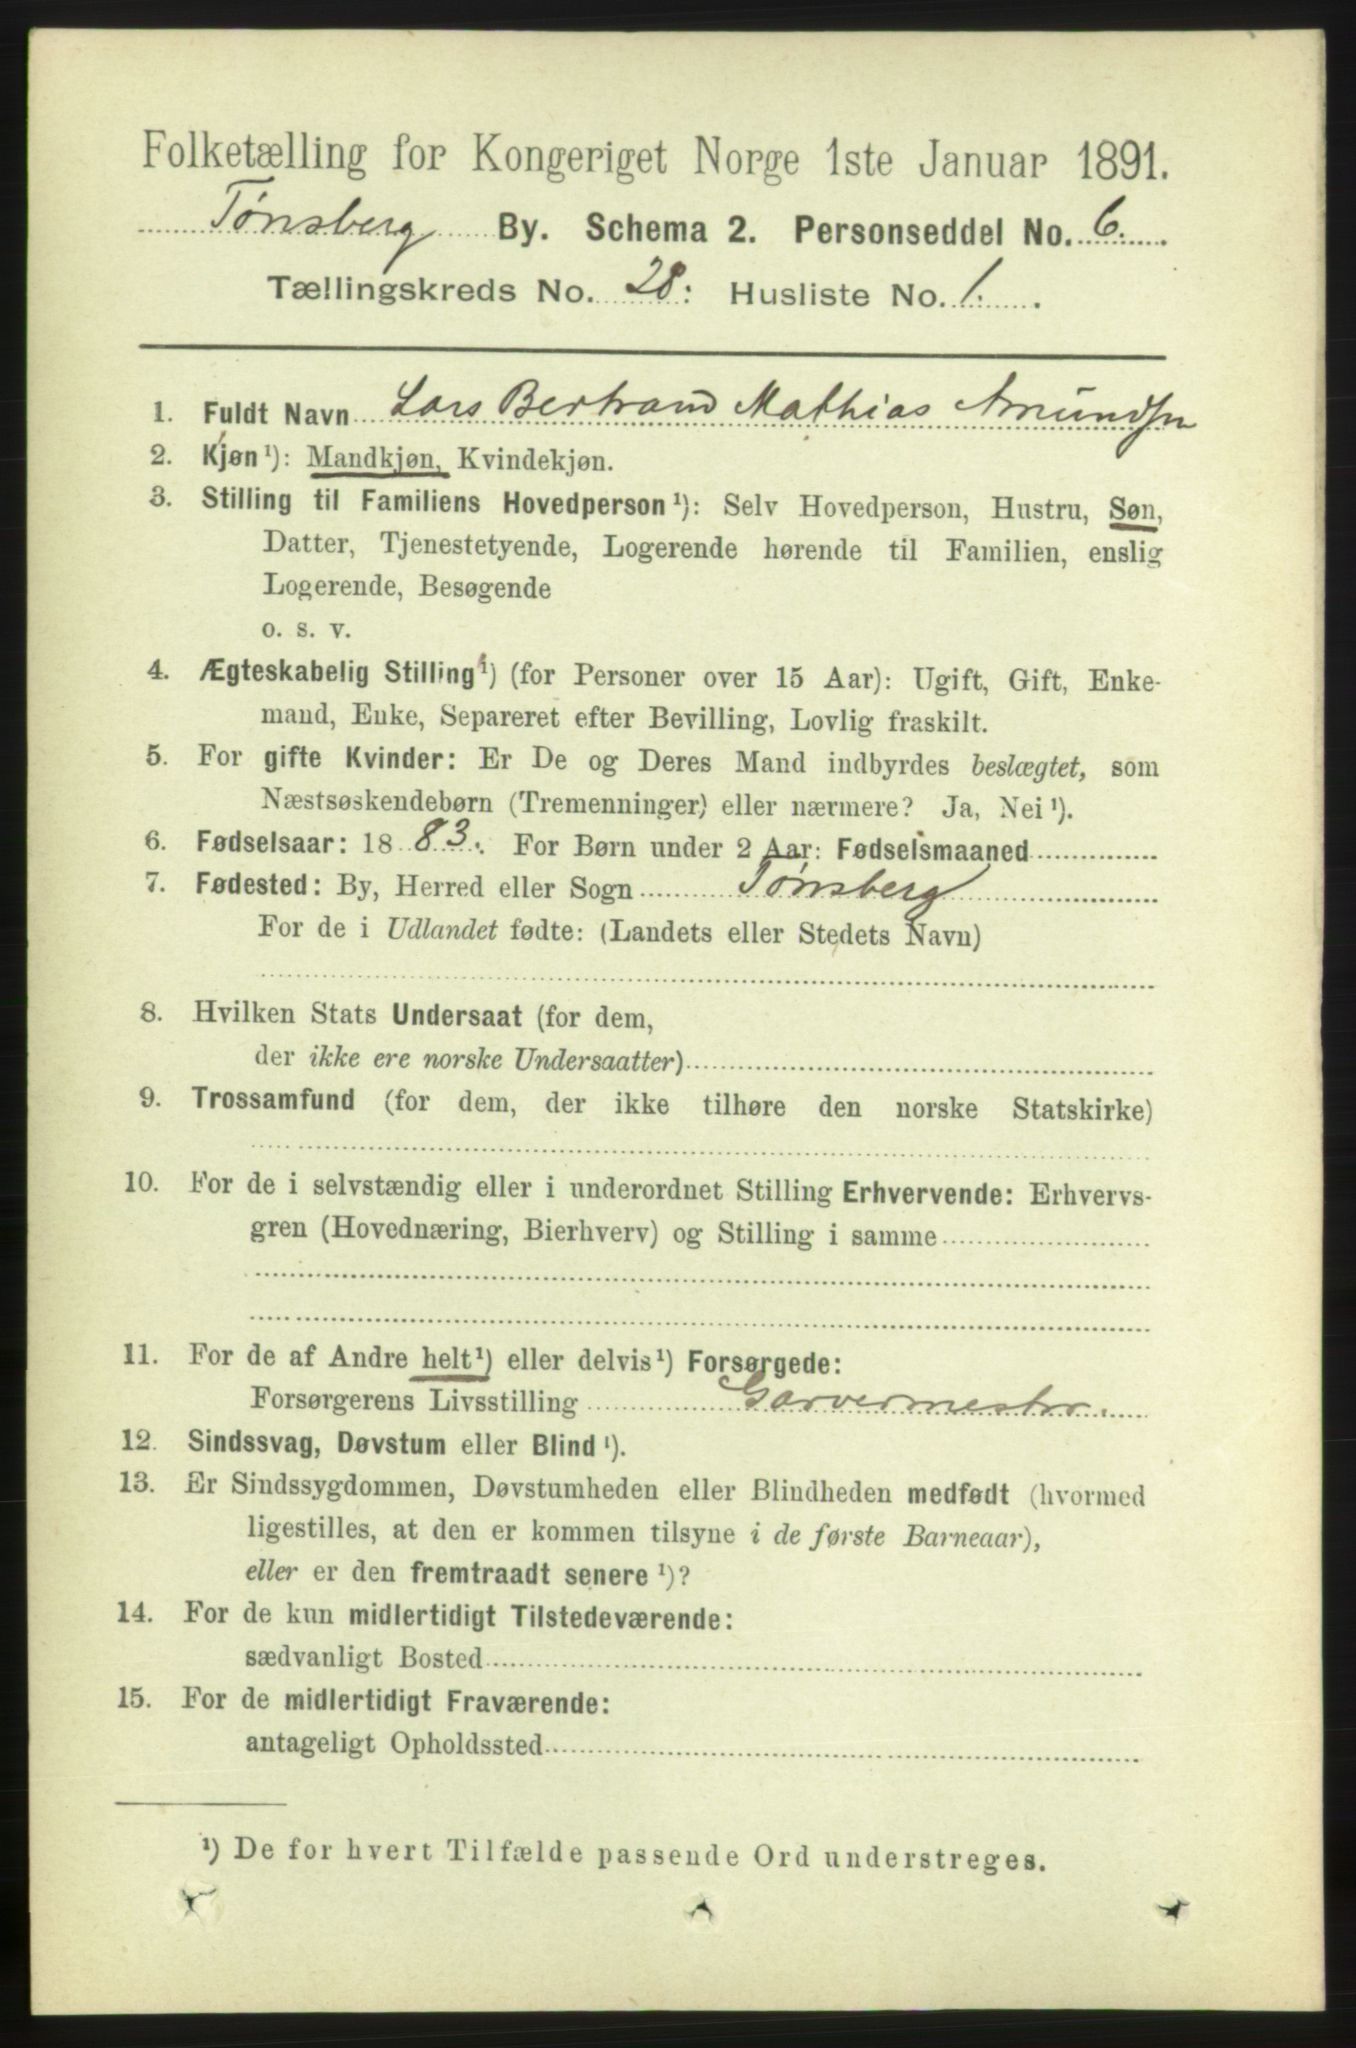 Folketælling for Kongeriget Norge 1ste Januar 1891.
Tønsberg By. Schema 2. Personseddel No. 6.
Tællingskreds No. 28. Husliste No. 1.
1. Fuldt Navn Lars Bertrand Mathias Amundsen
2. Kjøn¹): Mandkjøn, Kvindekjøn.
3. Stilling til Familiens Hovedperson¹): Selv Hovedperson, Hustru, Søn,
Datter, Tjenestetyende, Logerende hørende til Familien, enslig
Logerende, Besøgende
o. s. v.
4. Ægteskabelig Stilling¹) (for Personer over 15 Aar): Ugift, Gift, Enke-
mand, Enke, Separeret efter Bevilling, Lovlig fraskilt.
5. For gifte Kvinder: Er De og Deres Mand indbyrdes beslægtet, som
Næstsøskendebørn (Tremenninger) eller nærmere? Ja, Nei¹).
6. Fødselsaar: 1883. For Børn under 2 Aar: Fødselsmaaned
7. Fødested: By, Herred eller Sogn Tønsberg
For de i Udlandet fødte: (Landets eller Stedets Navn)
8. Hvilken Stats Undersaat (for dem,
der ikke ere norske Undersaatter)
9. Trossamfund (for dem, der ikke tilhøre den norske Statskirke)
10. For de i selvstændig eller i underordnet Stilling Erhvervende: Erhvervs-
gren (Hovednæring, Bierhverv) og Stilling i samme
11. For de af Andre helt¹) eller delvis¹) Forsørgede:
Forsørgerens Livsstilling Garvermester.
12. Sindssvag, Døvstum eller Blind¹).
13. Er Sindssygdommen, Døvstumheden eller Blindheden medfødt (hvormed
ligestilles, at den er kommen tilsyne i de første Barneaar),
eller er den fremtraadt senere¹)?
14. For de kun midlertidigt Tilstedeværende:
sædvanligt Bosted
15. For de midlertidigt Fraværende:
antageligt Opholdssted
¹) De for hvert Tilfælde passende Ord understreges.